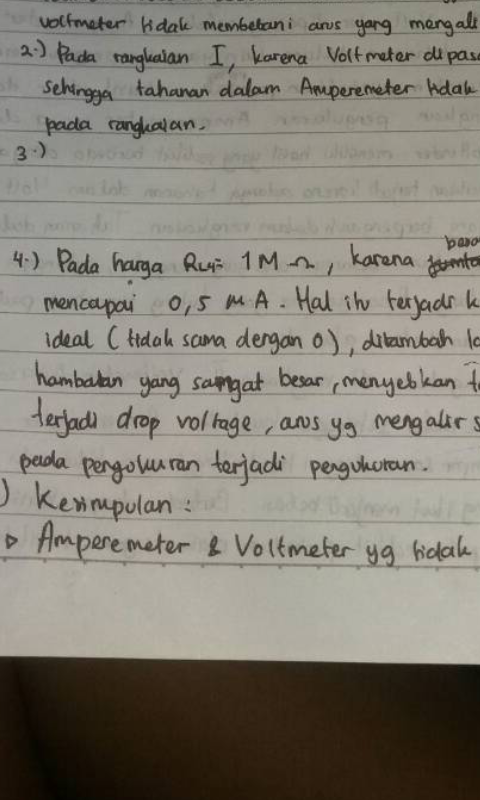 voltmeter tidak membebani arus yang mengali
2.) Pada rangkaian I, karena Voltmeter dipasa
sehingga tahanan dalam Amperemeter tidak
pada rangkaian.
3.)
4.) Pada harga Ru= 1 M Ω, karena
mencapai 0,5 μA. Hal itu terjadi k
ideal (tidak sama dengan 0), ditambah la
hambatan yang sangat besar, menyebkan t
terjadi drop voltage, arus yg mengalir s
pada pengukuran terjadi pengukuran.
) Kesimpulan :
▷ Amperemeter & Voltmeter yg tidak